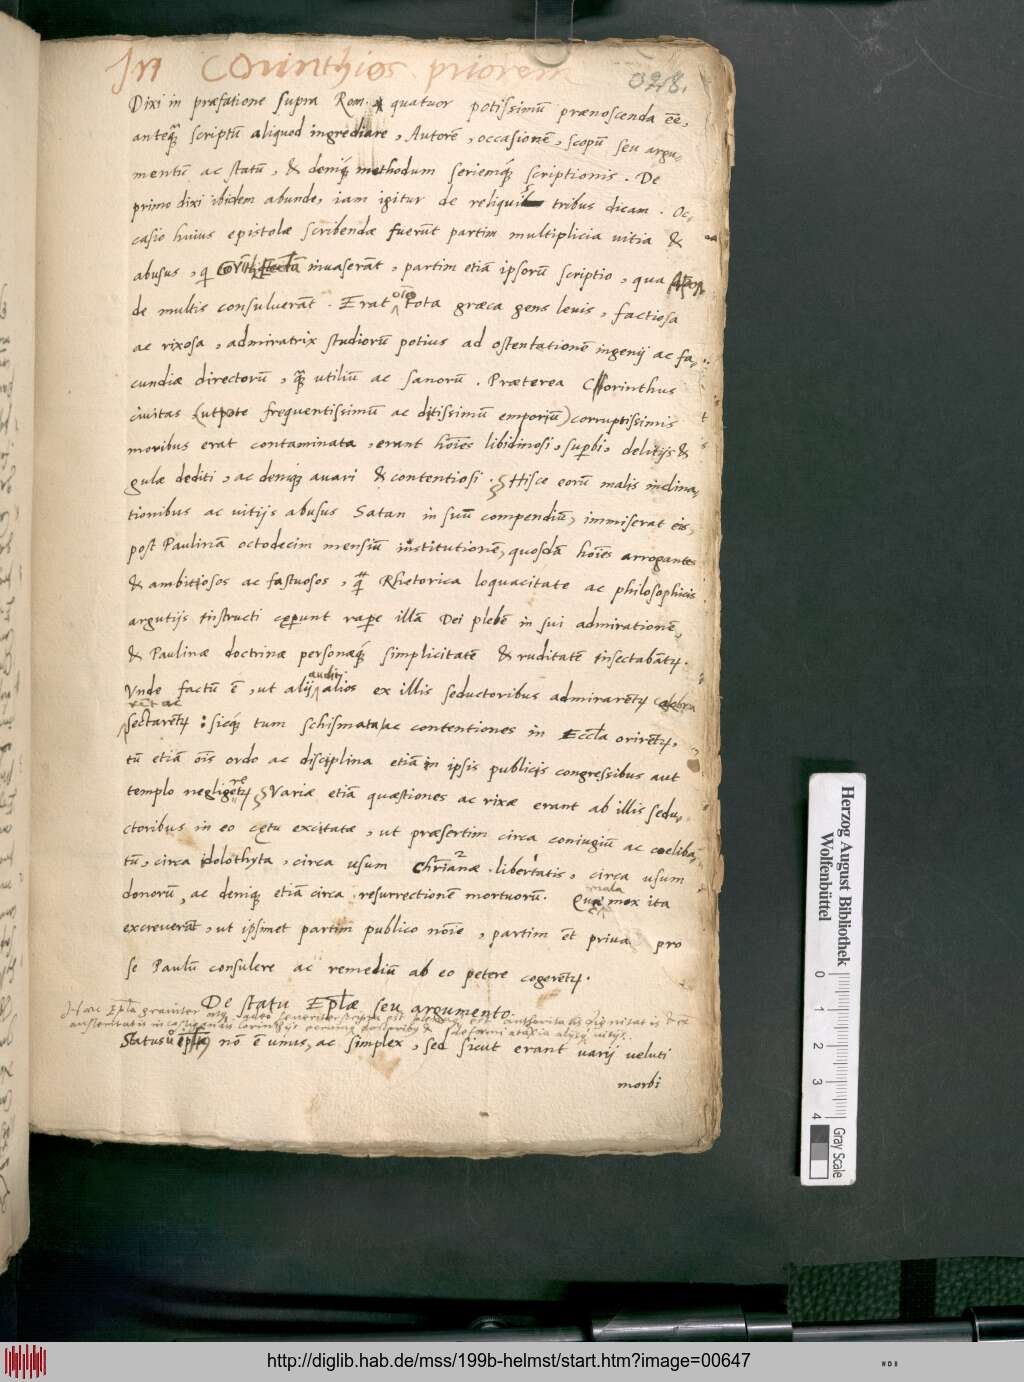 In Corinthios priorem
328.
Dixi in præfatione supra Rom. quatuor potissimũ prænoscenda ẽe,
anteq̃ scriptũ aliquod ingrediare, Autorẽ, occasionẽ, scopũ seu argu-
mentũ ac statũ, & deniq́ methodum seriemq́ scriptionis. De
primo dixi ibidem abunde, iam igitur de reliquis tribus dicam. Oc-
casio huius epistolæ scribendæ fuerũt partim multiplicia uitia &
abusus, q̃ inuaserãt, partim etiã ipsorũ scriptio, qua
de multis consuluerãt. Erat oĩo tota græca gens leuis, factiosa
ac rixosa, admiratrix studiorũ potius ad ostentationẽ ingenij ac fa-
cundiæ directorũ, q̃ utiliũ ac sanorũ. Præterea Corinthus
ciuitas (utpote frequentissimũ ac ditissimũ emporiũ) corruptissimis
moribus erat contaminata, erant hoĩes libidinosi, supbi, delitijs &
gulæ dediti, ac deniq́ auari & contentiosi. Hisce eorũ malis inclina-
tionibus ac uitijs abusus Satan in suũ compendiũ, immiserat eis,
post Paulinã octodecim mensiũ institutionẽ, quosdã hoĩes arrogantes
& ambitiosos ac fastuosos, q̃ Rhetorica loquacitate ac philosophicis
argutijs instructi cęperunt rapere illã Dei plebẽ in sui admirationẽ,
& Paulinæ doctrinæ personæq́ simplicitatẽ & ruditatẽ insectabãtꝛ.
Vnde factũ ẽ, ut alij alios ex illis seductoribus admirarẽtꝛ
auditi
rẽt ac
sectarẽtꝛ: sicq́ tum schismata ac contentiones in Eccl̃a orirẽtꝛ,
tũ etiã oĩs ordo ac disciplina etiã in ipsis publicis congressibus aut
templo negligerẽtꝛ. Variæ etiã quæstiones ac rixæ erant ab illis sedu-
ctoribus in eo cętu excitatæ, ut præsertim circa coniugiũ ac coeliba-
tũ, circa idolothyta, circa usum Chr̃ianæ libertatis, circa usum
donorũ, ac deniq́ etiã circa resurrectionẽ mortuorũ. Quæ mala mox ita
excreuerũt, ut ipsimet partim publico noĩe, partim ẽt priua pro
se Paulũ consulere ac remediũ ab eo petere cogerẽtꝛ.
De statu Epl̃æ seu argumento.
Hæc Epl̃a grauiter
Status epl̃æ nõ ẽ unus, ac simplex, sed sicut erant uarij ueluti
morbi
Herzog August Bibliothek
Wolfenbüttel
0 1 2 3 4
Gray Scale
http://diglib.hab.de/mss/199b-helmst/start.htm?image=00647
WDB